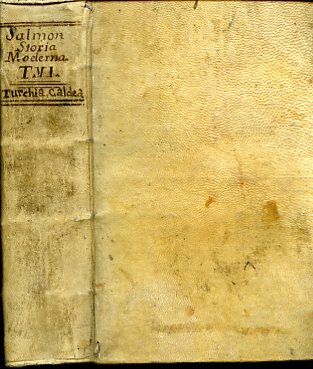 Salmon
Storia
Moderna
T.VI.
Turchia. Caldea